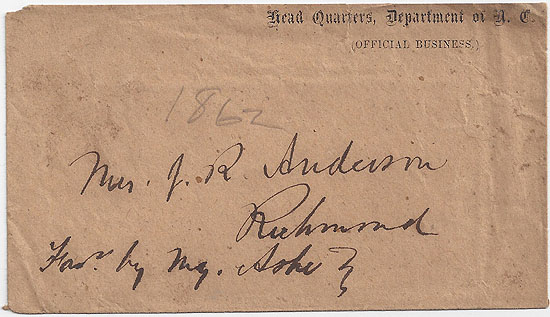 Head Quarters, Department of N. C.
(OFFICIAL BUSINESS.)
1862
Mrs. J. R. Anderson
Richmond
Favr. by Maj. Ashe